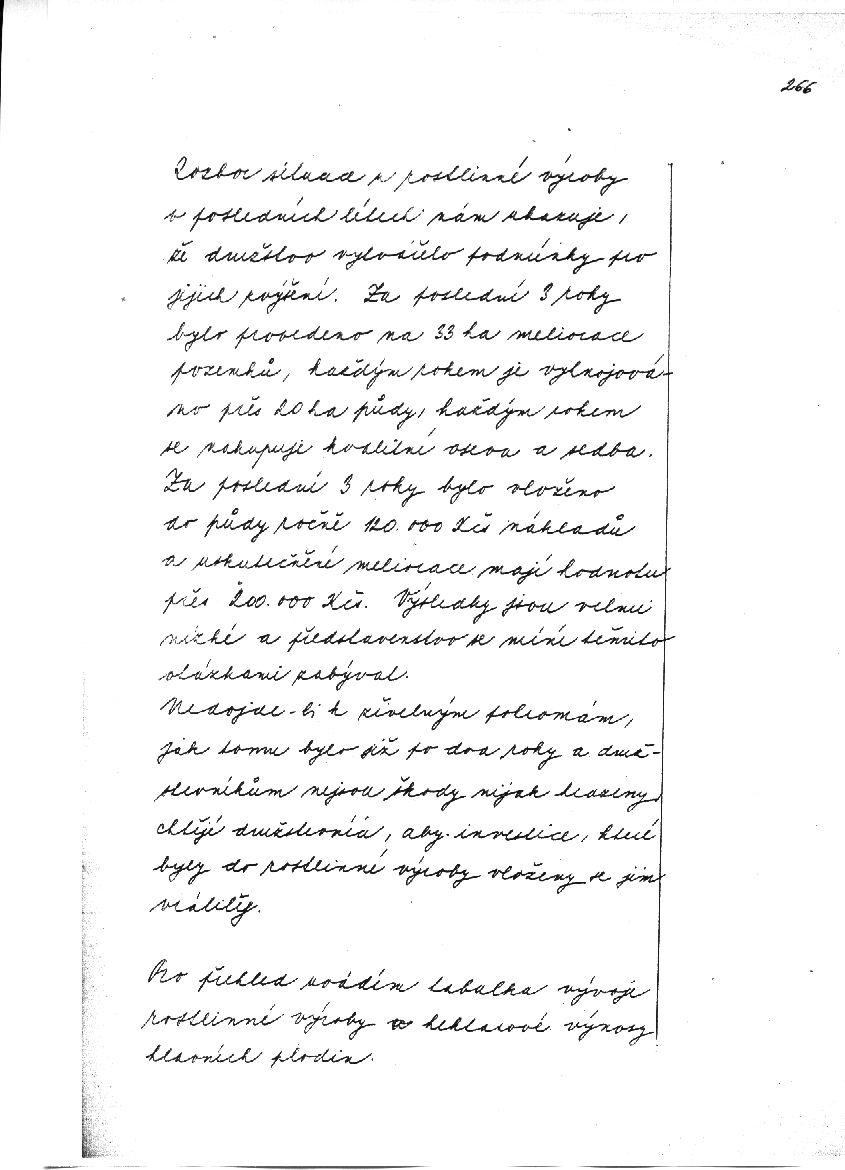 266
Rozbor situace v rostlinné výroby
v posledních létech nám ukazuje,
že družstvo vytvářelo podmínky pro
jijich zvýšení. Za poslední 3 roky
bylo provedeno na 33 ha meliorace
pozemků, každým rokem je vyhnojová-
no přes 20 ha půdy, každým rokem
se nakupuje kvalitní osiva a sadba.
Za poslední 3 roky bylo vloženo
do půdy ročně 120.000 Kčs nákladů
a uskutečněné meliorace mají hodnotu
přes 200.000 Kčs. Výsledky jsou velmi
nízké a představenstvo se míní těmito
otázkami zabývat.
Nedojde-li k živelným pohromám,
jak tomu bylo již po dva roky a druž-
stevníkům nejsou škody nijak hrazeny,
chtějí družstevníci, aby investice, které
byly do rostlinné výroby vloženy se jim
vrátily.
Pro přehled uvádím tabulka vývoje
rostlinné výroby a hektarové výnosy
hlavních plodin.